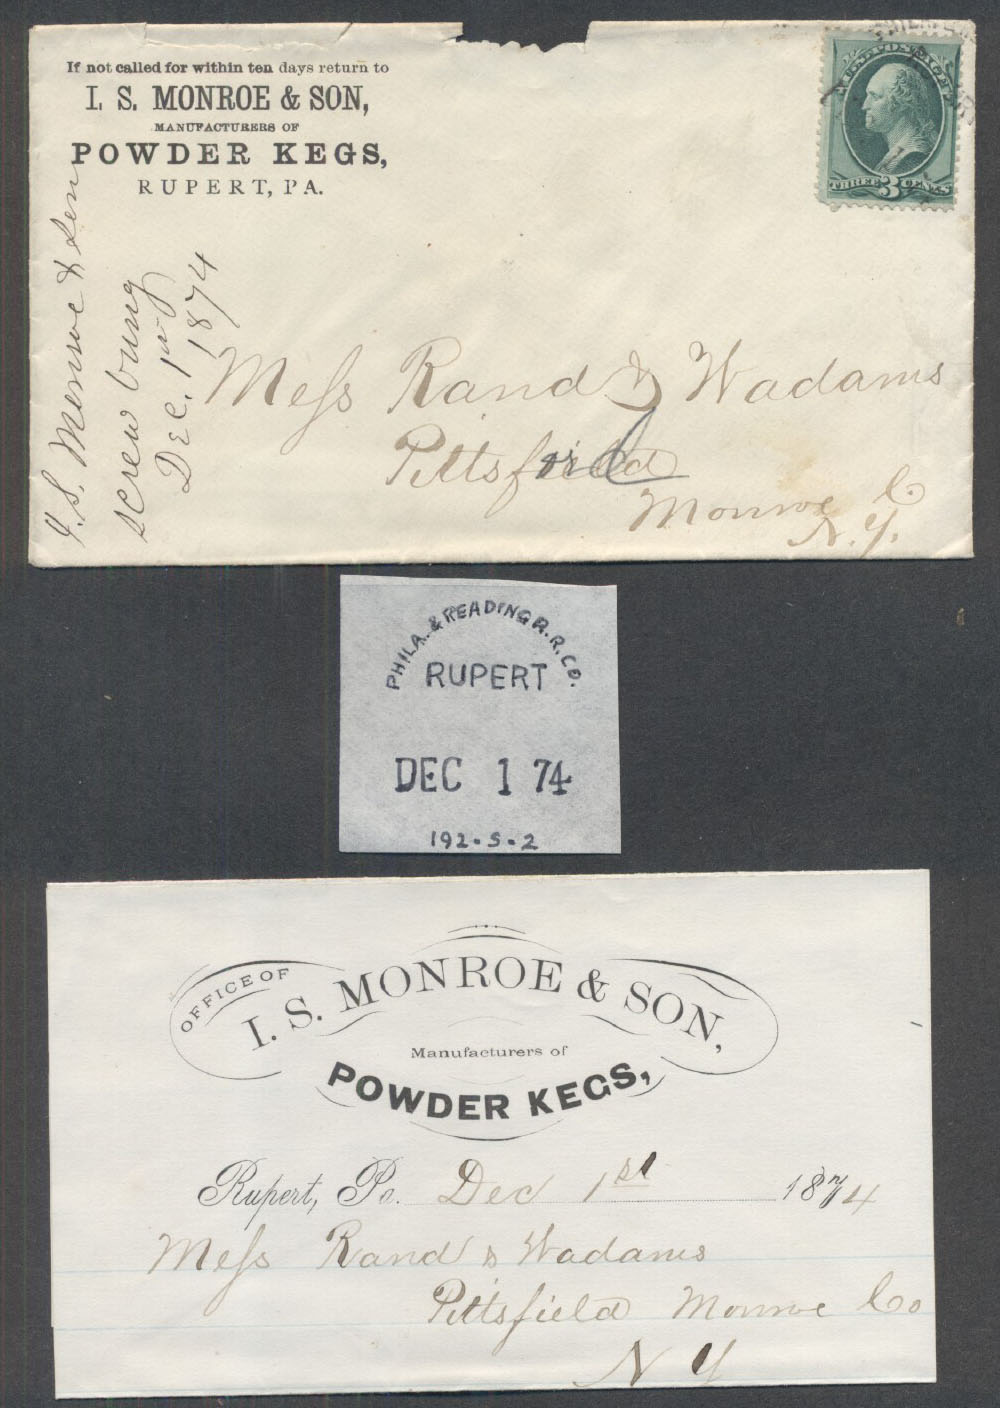 If not called for within ten days return to
I. S. MONROE & SON,
MANUFACTURERS OF
POWDER KEGS,
RUPERT, PA.
U.S. POSTAGE
THREE 3 CENTS
I. S. Monroe & Son
screw bung
Dec. 1st
1874
Mess Rand & Wadams
Pittsfield
Monroe Co
N.Y.
PHILA. & READING R.R. CO.
RUPERT
DEC 1 74
192-S-2
OFFICE OF
I. S. MONROE & SON,
Manufacturers of
POWDER KEGS,
Rupert, Pa. Dec 1st 1874
Mess Rand & Wadams
Pittsfield Monroe Co
N Y